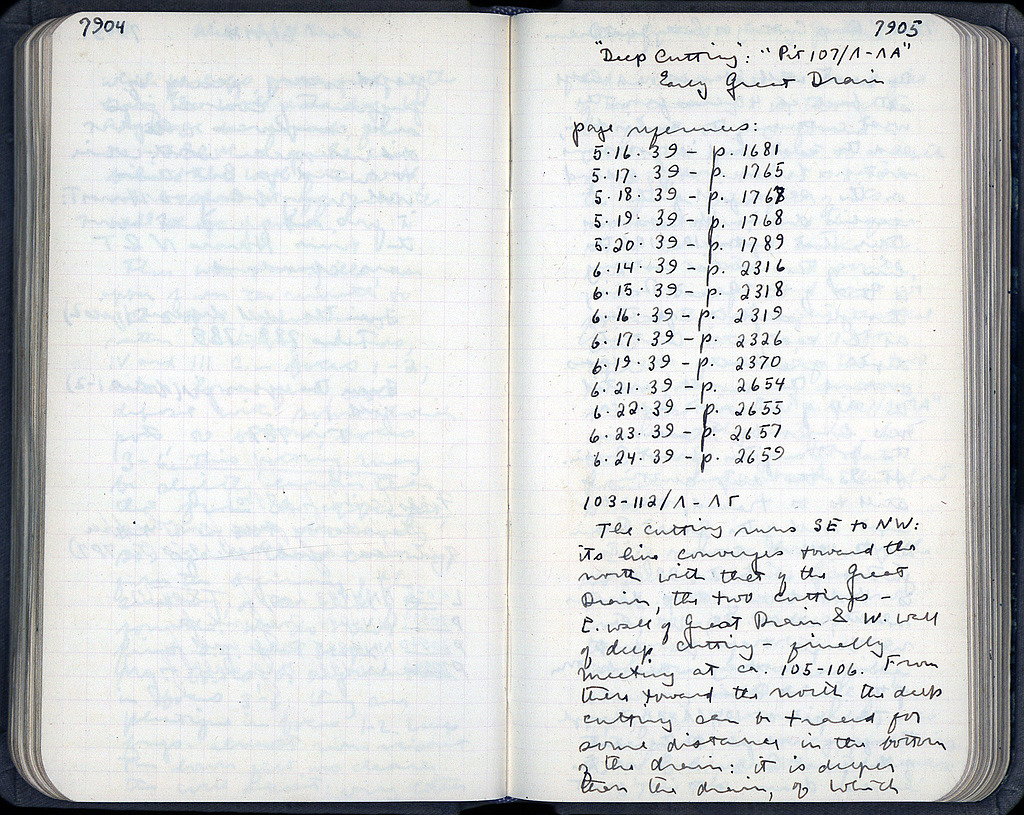 7904
7905
"Deep Cutting": "Pit 107/Λ-ΛΑ"
Early Great Drain
page references:
5.16.39 - p. 1681
5.17.39 - p. 1765
5.18.39 - p. 1767
5.19.39 - p. 1768
5.20.39 - p. 1789
6.14.39 - p. 2316
6.15.39 - p. 2318
6.16.39 - p. 2319
6.17.39 - p. 2326
6.19.39 - p. 2370
6.21.39 - p. 2654
6.22.39 - p. 2655
6.23.39 - p. 2657
6.24.39 - p. 2659
103-112/Λ-ΛΓ
The cutting runs SE to NW:
its line converges toward the
north with that of the Great
Drain, the two cuttings -
E. wall of Great Drain & W. wall
of deep cutting - finally
meeting at ca. 105-106. From
there toward the north the deep
cutting can be traced for
some distance in the bottom
of the drain: it is deeper
than the drain, of which